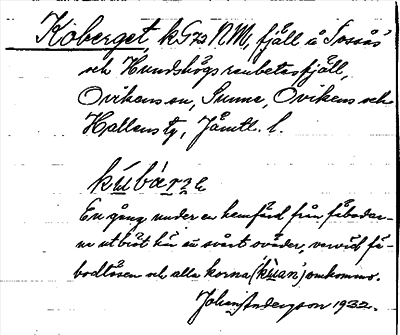 Koberget, k G 73 NM, fjäll å Tossås'
och Hundshögs renbetesfjäll,
Ovikens sn, Sunne, Ovikens och
Hallens tg, Jämtl. l.
kúbárʒe
En gång under en hemfärd från fäbodar-
ne utbröt här ett svårt oväder, varvid fä-
bodtösen och alla korna (kúan') omkommo.
Johan Andersson 1932.